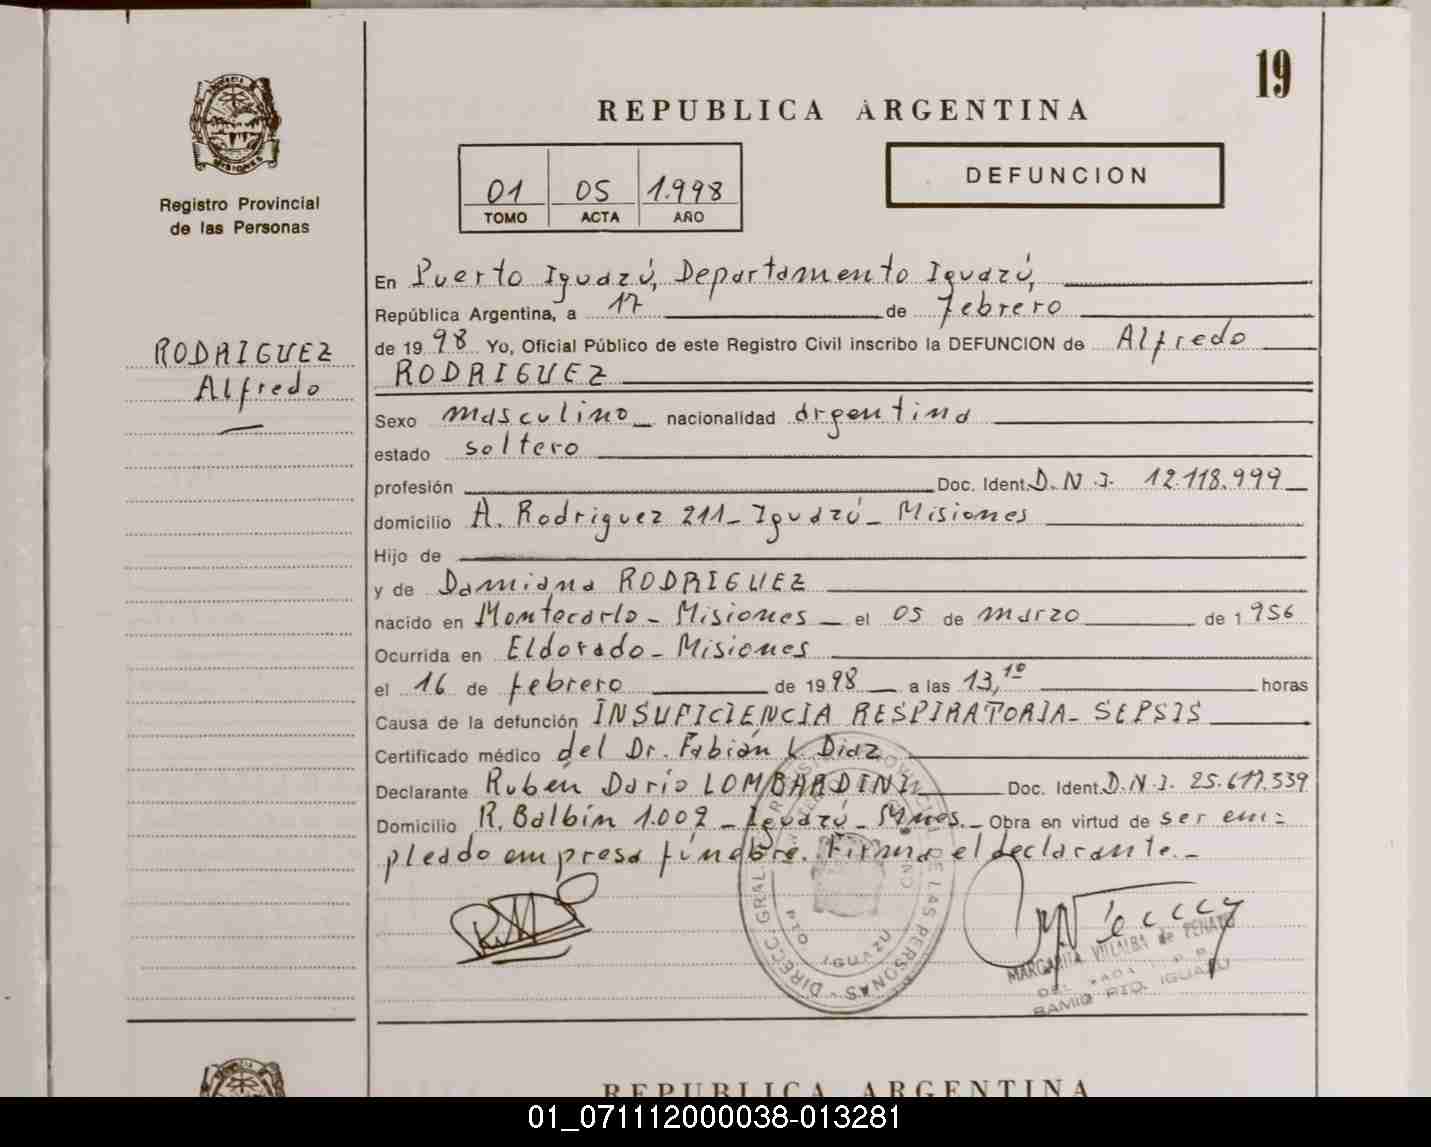 19
REPUBLICA ARGENTINA
DEFUNCION
01 05 1.998
TOMO ACTA AÑO
MISIONES
Registro Provincial
de las Personas
RODRIGUEZ
Alfredo
En Puerto Iguazú, Departamento Iguazú,
República Argentina, a 17 de febrero
de 1998 Yo, Oficial Público de este Registro Civil inscribo la DEFUNCION de Alfredo
RODRIGUEZ
Sexo masculino nacionalidad argentina
estado soltero
profesión Doc. Ident. D.N.I. 12.118.999
domicilio A. Rodriguez 211 - Iguazú - Misiones
Hijo de
y de Damiana RODRIGUEZ
nacido en Montecarlo - Misiones - el 05 de marzo de 1956
Ocurrida en Eldorado - Misiones
el 16 de febrero de 1998 a las 13,10 horas
Causa de la defunción INSUFICIENCIA RESPIRATORIA - SEPSIS
Certificado médico del Dr. Fabián L. Diaz
Declarante Rubén Darío LOMBARDINI Doc. Ident. D.N.I. 25.617.339
Domicilio R. Balbín 1.002 - Iguazú - Mnes. - Obra en virtud de ser em=
pleado empresa fúnebre. Firma el declarante. -
DIRECC. GRAL. PROVINCIAL DE LAS PERSONAS
IGUAZU
MARGARITA VILLALBA de PENAYO
IGUAZU
REPUBLICA ARGENTINA
01_071112000038-013281